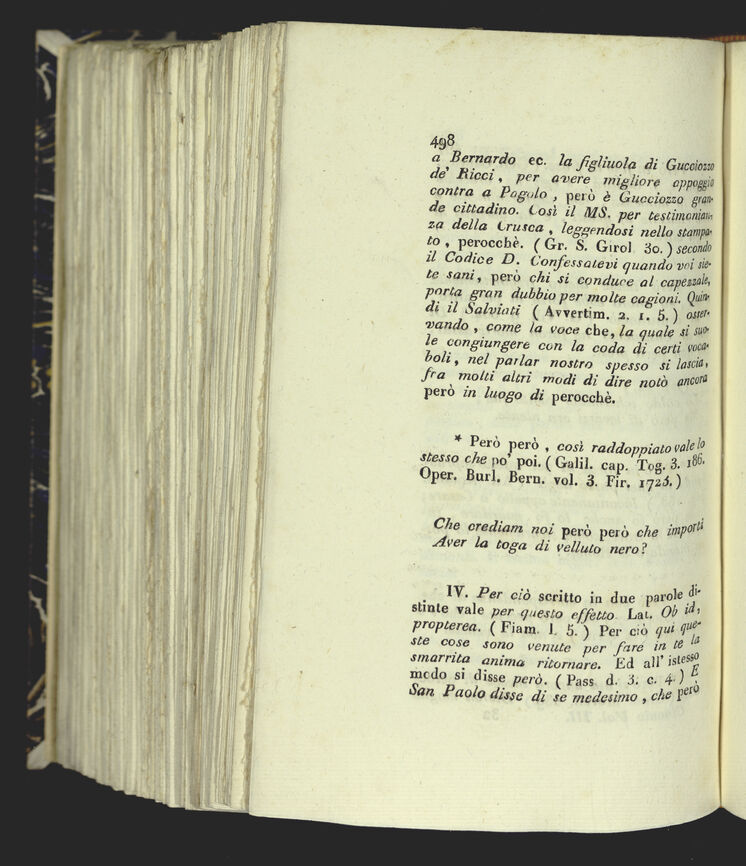 498
a Bernardo ec. la figliuola di Gucciozzo
de' Ricci, per avere migliore appoggio
contra a Pagolo, però è Gucciozzo gran-
de cittadino. Così il MS. per testimonian-
za della Crusca, leggendosi nello stampa-
to, perocchè. (Gr. S. Girol 30.) secondo
il Codice D. Confessatevi quando voi sie-
te sani, però chi si conduce al capezzale,
porta gran dubbio per molte cagioni. Quin-
di il Salviati (Avvertim. 2. 1. 5.) osser-
vando, come la voce che, la quale si suo-
le congiungere con la coda di certi voca-
boli, nel parlar nostro spesso si lascia,
fra molti altri modi di dire notò ancora
però in luogo di perocchè.
* Però però, così raddoppiato vale lo
stesso che po' poi. (Galil. cap. Tog. 3. 186.
Oper. Burl. Bern. vol. 3. Fir. 1723.)
Che crediam noi però però che importi
Aver la toga di velluto nero?
IV. Per ciò scritto in due parole di-
stinte vale per questo effetto Lat. Ob id,
propterea. (Fiam. l. 5.) Per ciò qui que-
ste cose sono venute per fare in te la
smarrita anima ritornare. Ed all' istesso
modo si disse però. (Pass d. 3. c. 4.) E
San Paolo disse di se medesimo, che però